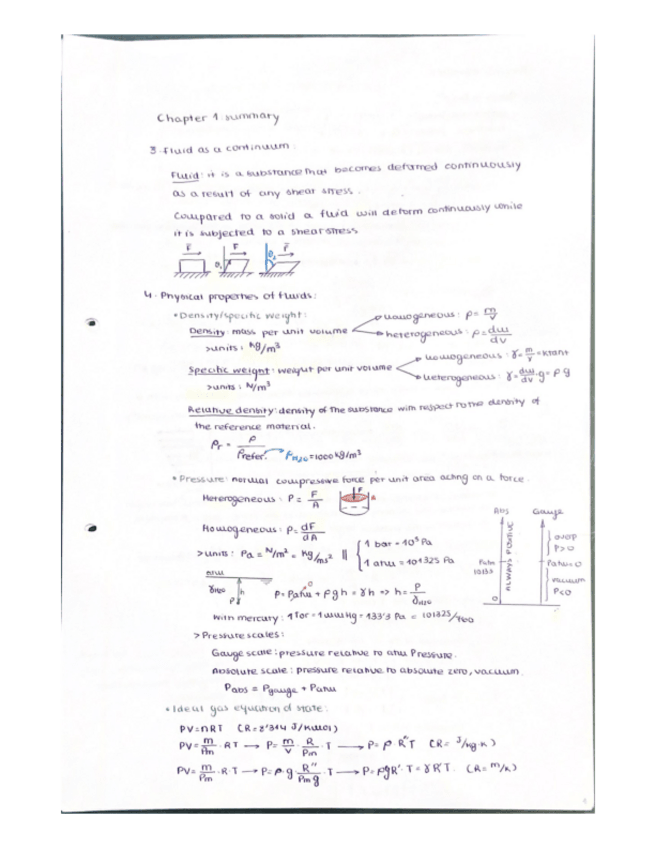 Chapter 1 summary
3. Fluid as a continuum:
Fluid: it is a substance that becomes deformed continuously
as a result of any shear stress.
Compared to a solid a fluid will deform continuously while
it is subjected to a shear stress
F F F
θ₁ θ₂
4. Physical properties of fluids:
• Density/specific weight:
Density: mass per unit volume
homogeneous: ρ = m/V
heterogeneous: ρ = dm/dV
>units: kg/m³
Specific weight: weight per unit volume
homogeneous: γ = m/V = ktant
heterogeneous: γ = dm/dV · g = ρ g
>units: N/m³
Relative density: density of the substance with respect to the density of
the reference material.
ρr = ρ/ρrefer. → ρH2O = 1000 kg/m³
• Pressure: normal compressive force per unit area acting on a force.
Heterogeneous: P = F/A
F A
Homogeneous: p = dF/dA
>units: Pa = N/m² = kg/ms² || 1 bar = 10⁵ Pa
1 atm = 101325 Pa
atm
γH2O h P
P = Patm + ρ g h = γh => h = P/γH2O
0
With mercury: 1 Tor = 1 mmHg = 133'3 Pa = 101325/760
Abs Gauge
ALWAYS POSITIVE
Patm
Patm=0
overp
P>0
vacuum
P<0
0
> Pressure scales:
Gauge scale: pressure relative to atm Pressure.
Absolute scale: pressure relative to absolute zero, vacuum.
Pabs = Pgauge + Patm
• Ideal gas equation of state:
PV=nRT (R=8'314 J/Kmol)
PV = m/Pm · RT → P = m/V · R/Pm · T → P = ρ · R''T (R = J/kg·K)
PV = m/Pm · R·T → P = ρ·g · R''/Pm g · T → P = ρgR' · T = γR'T. (R = m/K)